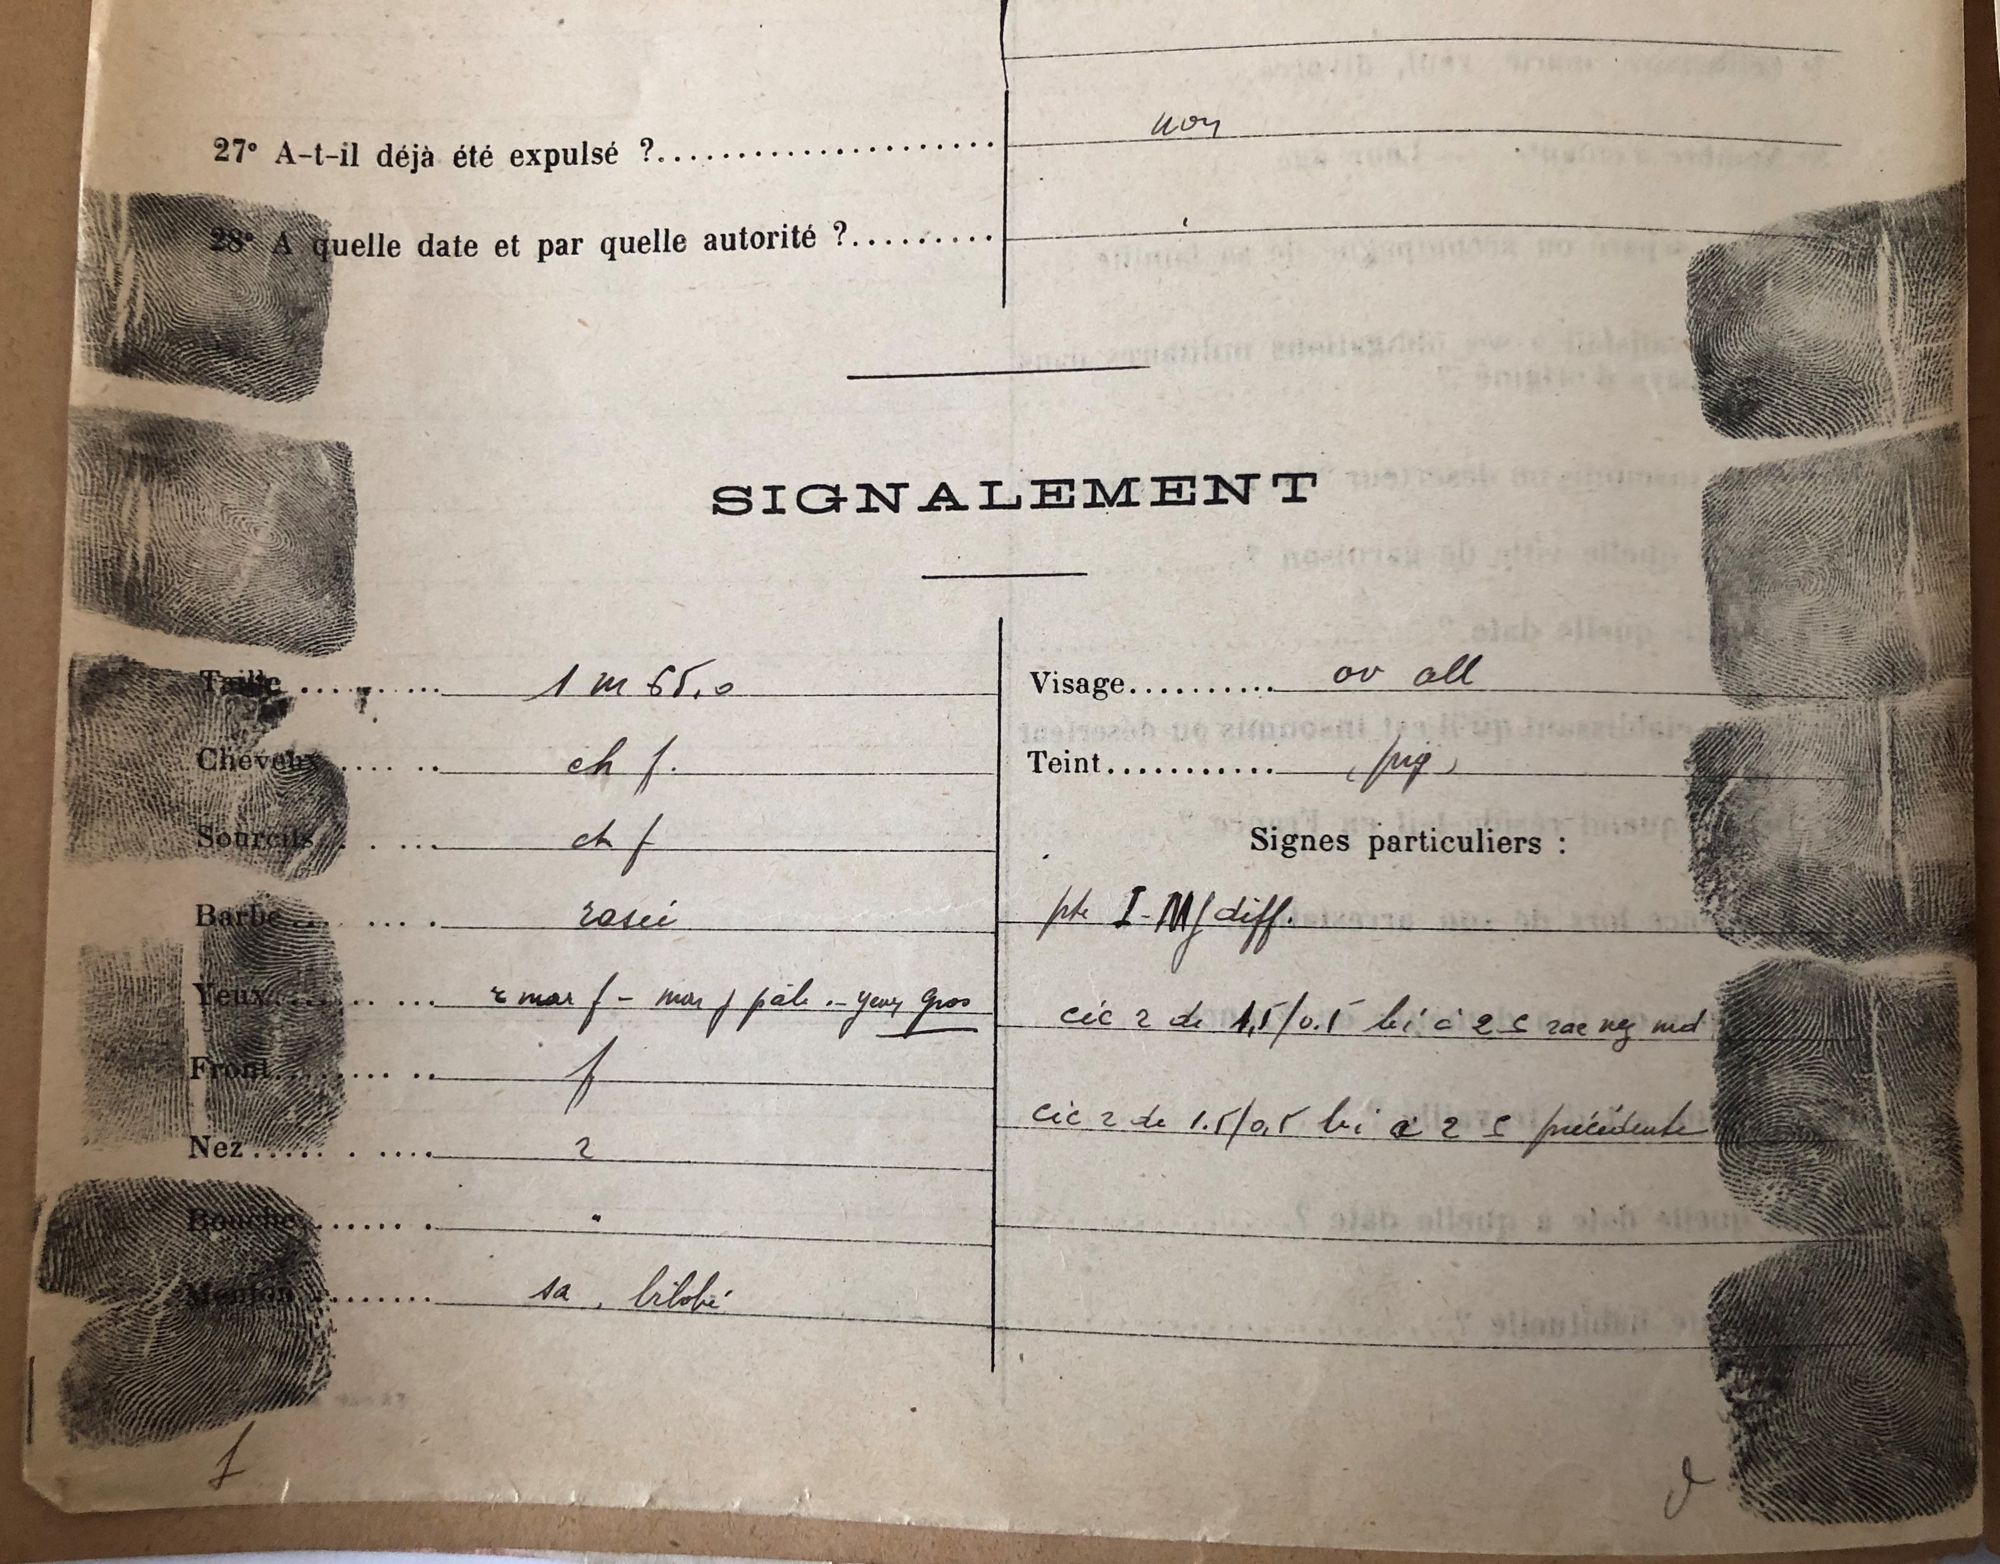 27° A-t-il déjà été expulsé ?..................... non
28° A quelle date et par quelle autorité ?.........
SIGNALEMENT
Taille ......... 1 m 65,0
Cheveux ...... ch f.
Sourcils ..... ch f
Barbe ....... rasée
Yeux ....... mar f - mar f pâle - yeux gros
Front ....... f
Nez ......... r
Bouche ......
Menton ....... sa. bilobé
Visage.......... ov all
Teint........... pig
Signes particuliers :
pte I-M g diff.
cic r de 1,5/0.5 bi à 2 c rac neg md
cic r de 1.5/0,5 bi à 2 c précédente
g
d